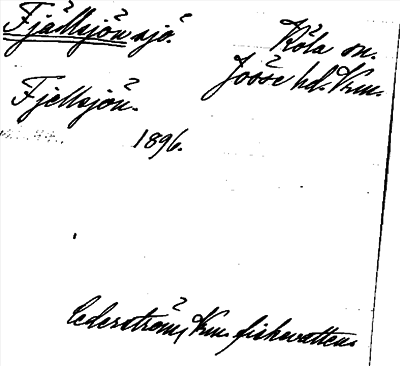 Fjällsjön sjö.
Köla sn.
Jösse hd. Vrm.
Fjellsjön.
1896.
Cederström, Vrm. fiskevatten.